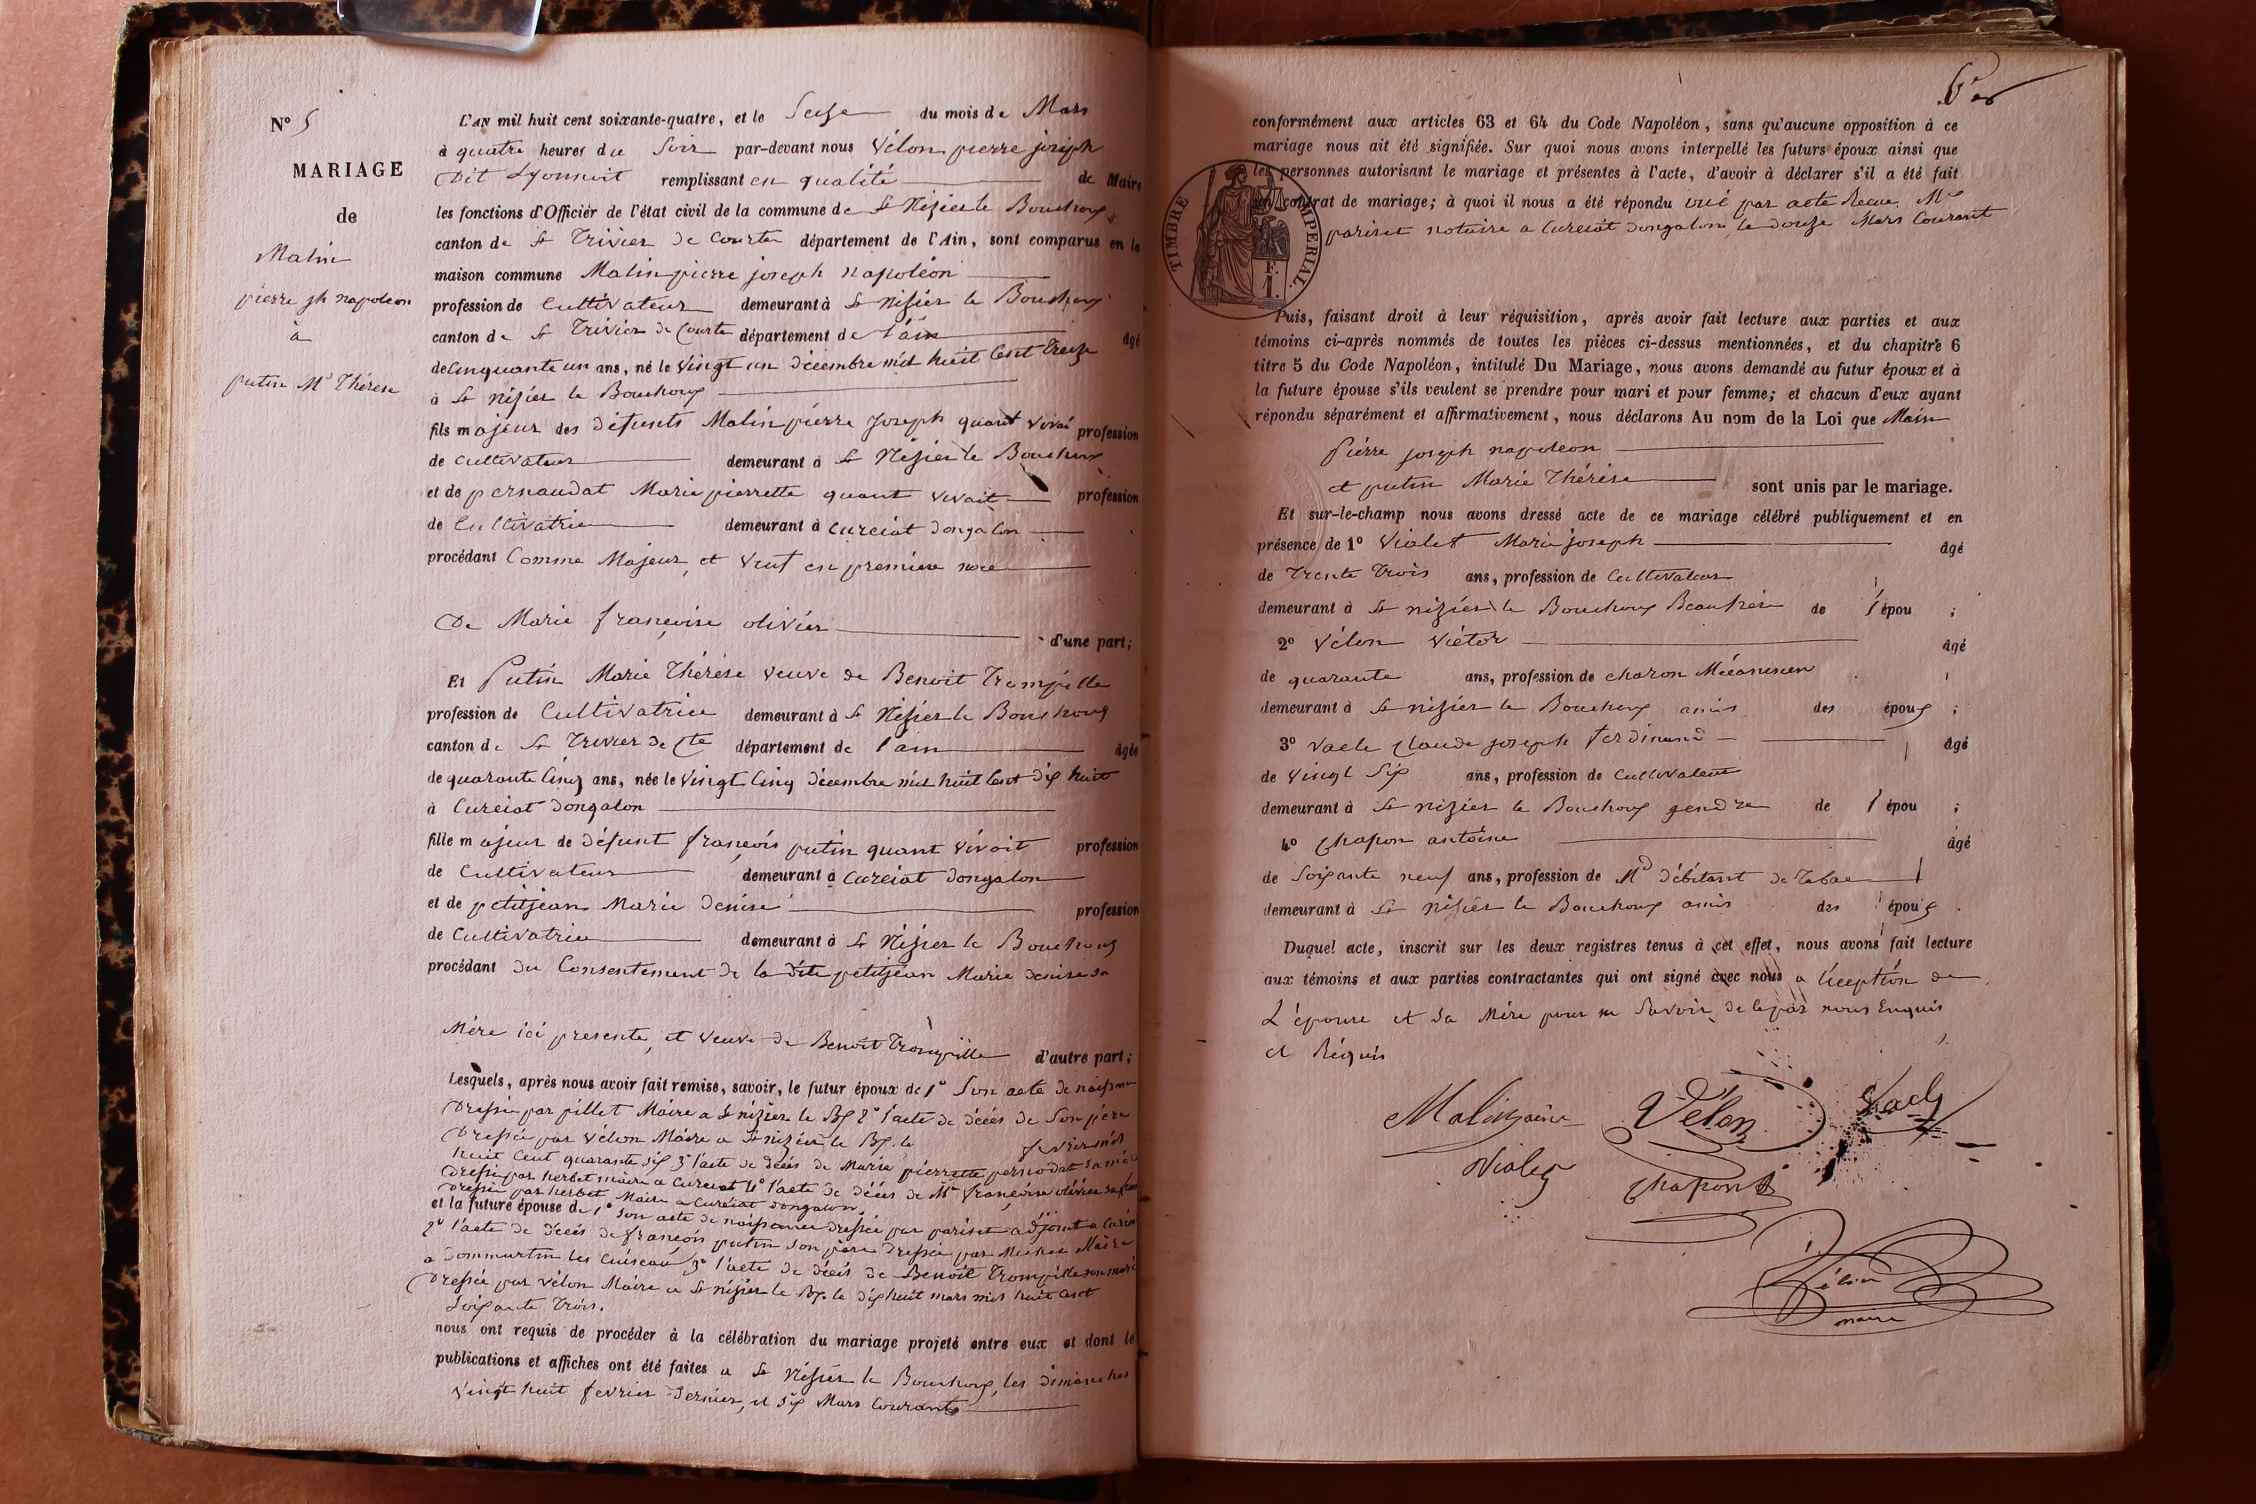 N° 5
MARIAGE
de
Malin
pierre jh napoleon
à
putin Mie Thérèse
L'AN mil huit cent soixante-quatre, et le Seize du mois de Mars
à quatre heures du Soir par-devant nous Vélon pierre joseph
Dit Lyonnoit remplissant en qualité de Maire
les fonctions d'Officier de l'état civil de la commune de St Nizier le Bouchoux
canton de St Trivier de Courtes département de l'Ain, sont comparus en la
maison commune Malin pierre joseph napoléon
profession de Cultivateur demeurant à St nizier le Bouchoux
canton de St Trivier de Courte département de l'ain âgé
de Cinquante un ans, né le Vingt un décembre mil huit Cent Treize
à St nizier le Bouchoux
fils majeur des défunts Malin pierre Joseph quant vivai profession
de Cultivateur demeurant à St Nizier le Bouchoux
et de pernaudat Marie pierrette quant vivait profession
de Cultivatrice demeurant à Curciat dongalon
procédant Comme Majeur, et Veuf en premiere noce
De Marie françoise olivier d'une part;
Et Putin Marie Thérèse veuve de Benoit Trompille
profession de Cultivatrice demeurant à St Nizier le Bouchoux
canton de St Trivier de Cte département de l'ain âgée
de quarante Cinq ans, née le Vingt Cinq décembre mil huit Cent dix huit
à Curciat dongalon
fille majeur de défunt françois putin quant vivait profession
de Cultivateur demeurant à Curciat dongalon
et de petitjean Marie denise profession
de Cultivatrice demeurant à St Nizier le Bouchoux
procédant du Consentement de la dite petitjean Marie denise sa
Mère ici presente, et veuve de Benoit Trompille d'autre part;
Lesquels, après nous avoir fait remise, savoir, le futur époux de 1° Son acte de naissance
Dressée par pillet Maire a St nizier le Bx 2° l'acte de décès de Son père
Dressée par Vélon Maire a St nizier le Bx le fevrier mil
huit Cent quarante six 3° l'acte de décès de Marie pierrette pernodat sa mère
Dressée par herbet maire a Curciat 4° l'acte de décès de Mie françoise olivier sa
Dressée par herbet Maire a Curciat dongalon
et la future épouse de 1° Son acte de naissance dressée par pariset adjoint a Curciat
2° l'acte de décès de françois putin Son père Dressée par Maire
a Dommartin les Cuiseau 3° l'acte de décès de Benoit Trompille son mari
Dressée par Vélon Maire a St nizier le Bx le dix huit mars mil huit Cent
Soixante Trois.
nous ont requis de procéder à la célébration du mariage projeté entre eux et dont le
publications et affiches ont été faites a St Nizier le Bouchoux, les dimanches
Vingt huit fevrier Dernier, et six Mars Courants
conformément aux articles 63 et 64 du Code Napoléon, sans qu'aucune opposition à ce
mariage nous ait été signifiée. Sur quoi nous avons interpellé les futurs époux ainsi que
les personnes autorisant le mariage et présentes à l'acte, d'avoir à déclarer s'il a été fait
un contrat de mariage; à quoi il nous a été répondu oui par acte Recue Me
pariset notaire a Curciat dongalon le douze Mars Courant
TIMBRE IMPERIAL.
F.
1.
Puis, faisant droit à leur réquisition, après avoir fait lecture aux parties et aux
témoins ci-après nommés de toutes les pièces ci-dessus mentionnées, et du chapitre 6
titre 5 du Code Napoléon, intitulé Du Mariage, nous avons demandé au futur époux et à
la future épouse s'ils veulent se prendre pour mari et pour femme; et chacun d'eux ayant
répondu séparément et affirmativement, nous déclarons Au nom de la Loi que Malin
Pierre joseph napoleon
et putin Marie Thérèse sont unis par le mariage.
Et sur-le-champ nous avons dressé acte de ce mariage célébré publiquement et en
présence de 1° Violet Marie joseph âgé
de Trente Trois ans, profession de Cultivateur
demeurant à St nizier le Bouchoux Beaufrère de l'épou ;
2° Vélon Victor âgé
de quarante ans, profession de charon Mécanicien
demeurant à St nizier le Bouchoux amis des époux ;
3° Vacle Claude joseph ferdinand âgé
de Vingt Six ans, profession de Cultivateur
demeurant à St nizier le Bouchoux gendre de l'épou ;
4° Chapon antoine âgé
de Soixante neuf ans, profession de Md débitant de Tabac
demeurant à St nizier le Bouchoux amis des époux .
Duquel acte, inscrit sur les deux registres tenus à cet effet, nous avons fait lecture
aux témoins et aux parties contractantes qui ont signé avec nous a l'éception de
L'épouse et Sa Mère pour ne Savoir de le par nous Enquis
et Réquis
Malin Vélon Vacle
Violet Chapon
Vélon
maire